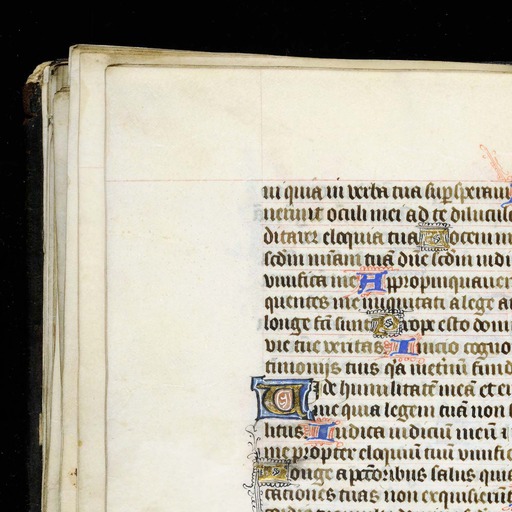 ui quia in verba tua sup̱sp̱eraui
uenerunt oculi mei ad te diluculo
ditarer eloquia tua Uocem m
scd̄m mīam tuā dn̄e scd̄m iudi
viuifica me Appropinquauer
quentes me iniquitati a lege a
longe fc̄i sunt Prope esto domi
vie tue veritas Inicio cogno
timonijs tuis qͣa in etnū fund
Uide humilitatē meā et e
me quia legem tuā non
litus Iudica iudiciū meū
me propter eloquiū tuū viuifi
Longe a pctōribus salus qui
cationes tuas non exquisierūt